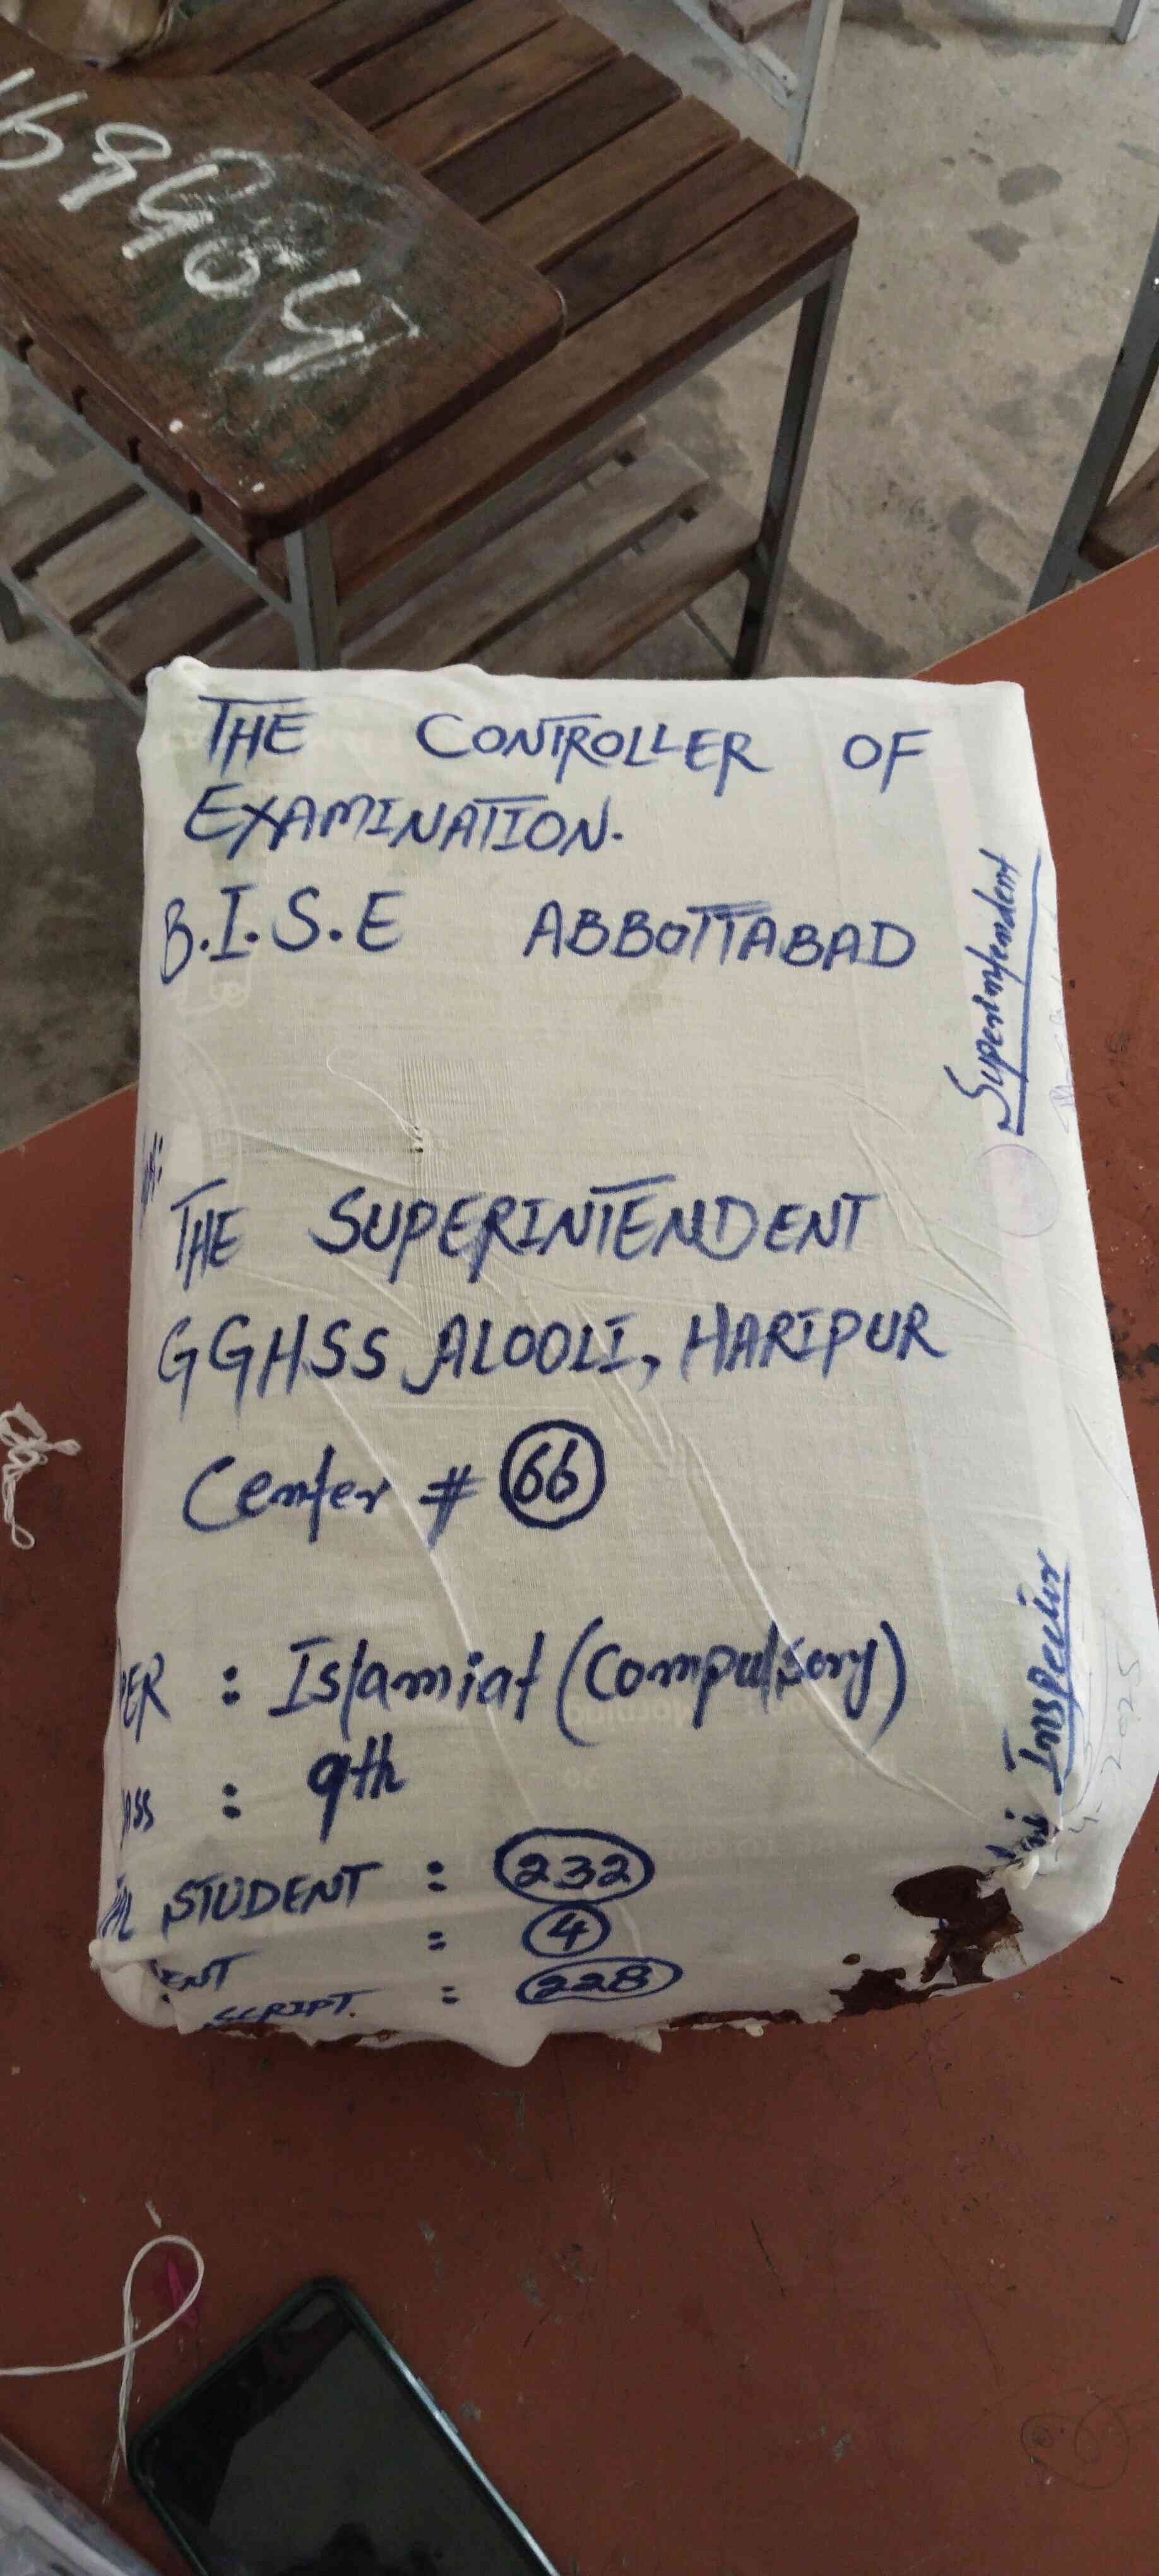 THE CONTROLLER OF
EXAMINATION.
B.I.S.E ABBOTTABAD
THE SUPERINTENDENT
GGHSS ALOOLI, HARIPUR
Center # 66
PER : Islamiat (Compulsory)
ASS : 9th
STUDENT : 232
ENT : 4
SCRIPT. : 228
Superintendent
Inspector
2025